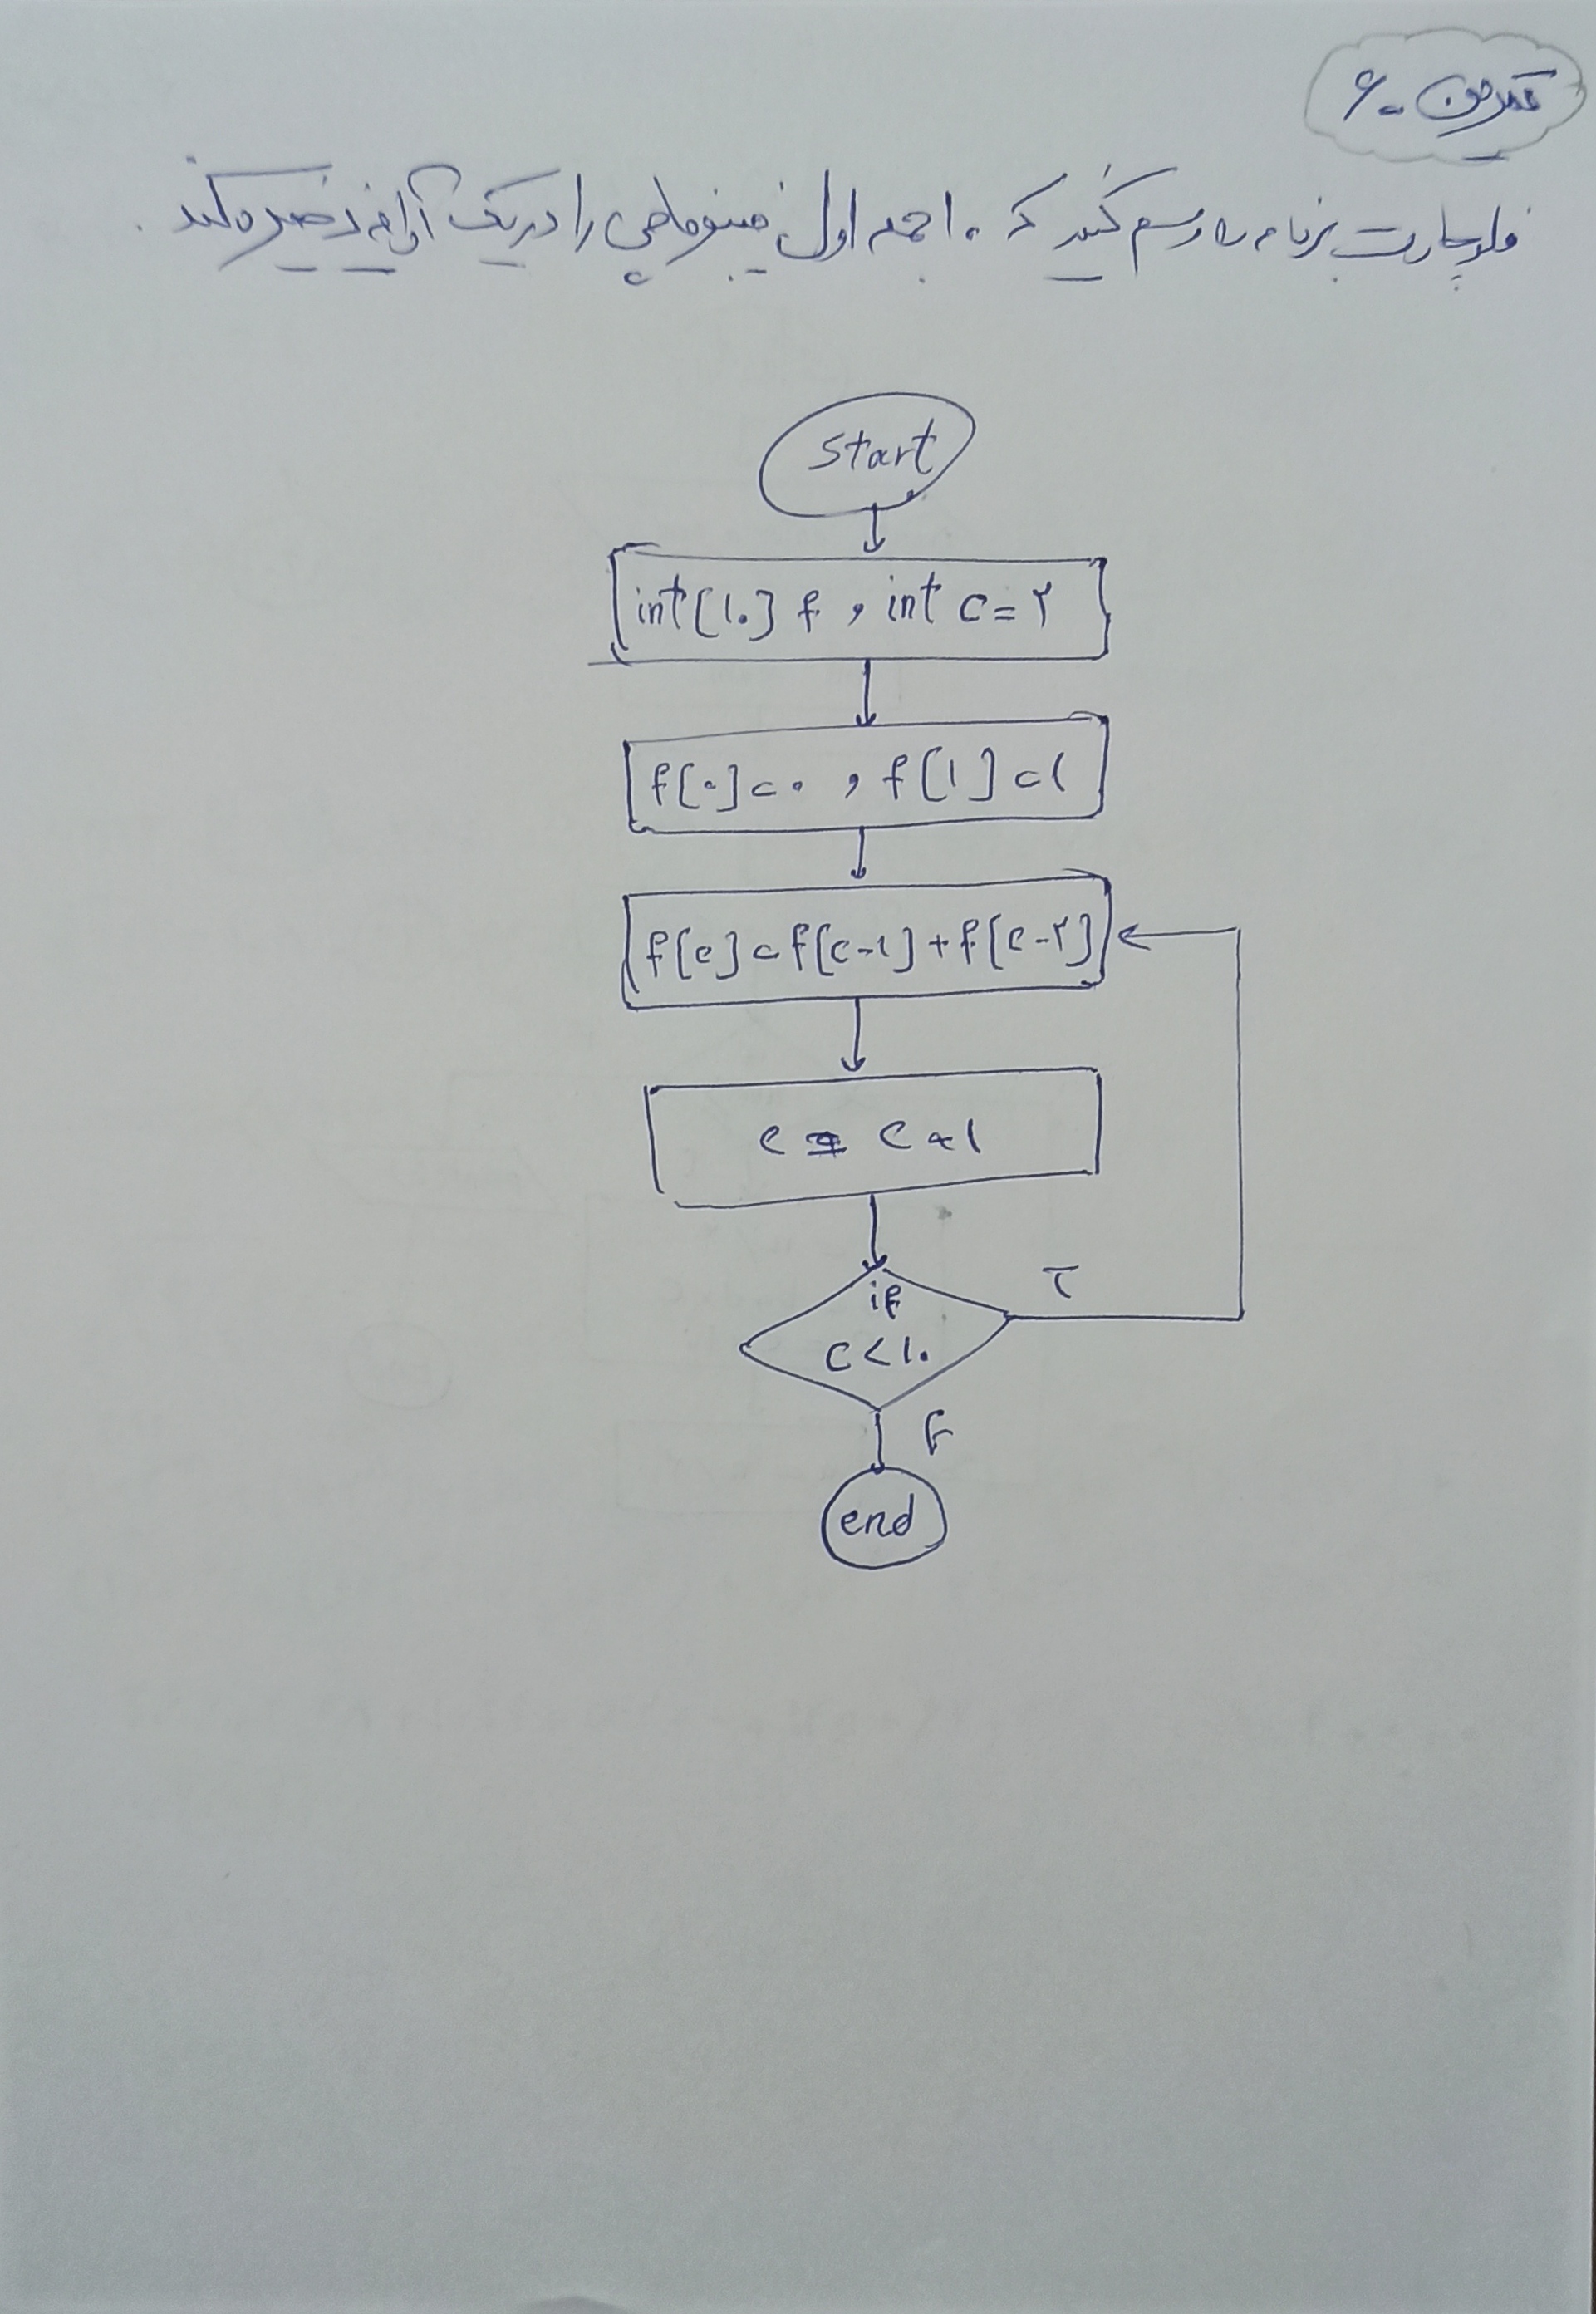 تمرین ۶۰
فلوچارت برنامه ای رسم کنید که ۱۰ جمله اول فیبوناچی را در یک آرایه ذخیره کند.
start
int[۱۰] f , int c = ۲
f[۰] = ۰ , f[۱] = ۱
f[c] = f[c-۱] + f[c-۲]
c = c + ۱
if
T
c < ۱۰
F
end